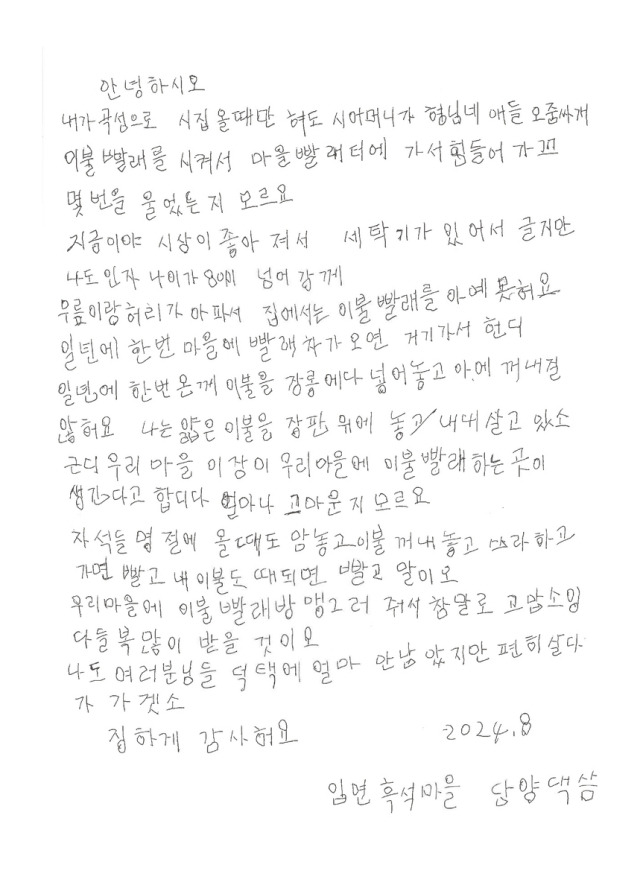 안녕하시오
내가 곡성으로 시집 올때만 혀도 시어머니가 형님네 애들 오줌싸게
이불 빨래를 시켜서 마을 빨래터에 가서 힘들어 가꼬
몇번을 울었든지 모르요
지금이야 시상이 좋아 져서 세탁기가 있어서 글지만
나도 인자 나이가 80이 넘어 감께
무릎이랑 허리가 아파서 집에서는 이불 빨래를 아예 못혀요
일년에 한번 마을에 빨래 차가 오면 거기가서 헌디
일년에 한번 온께 이불을 장롱에다 넣어놓고 아에 꺼내질
않혀요 나는 얇은 이불을 장판 위에 놓고 내대 살고 있소
근디 우리 마을 이장이 우리마을에 이불 빨래 하는 곳이
생긴다고 합디다 얼마나 고마운지 모르요
자석들 명절에 올때도 암놓고 이불 꺼내 놓고 쓰라 하고
가면 빨고 내 이불도 때되면 빨고 할이오
우리마을에 이불 빨래방 맹그러 줘서 참말로 고맙소잉
다들 복많이 받을 것이오
나도 여러분님들 덕택에 얼마 안남았지만 편히 살다
가 가겟소
징하게 감사혀요 2024.8
입면 흑석마을 담양댁 씀